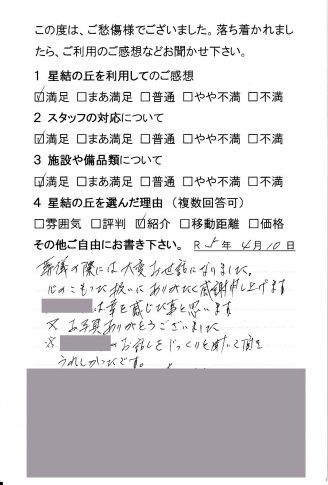 この度は、ご愁傷様でございました。落ち着かれまし
たら、ご利用のご感想などお聞かせ下さい。
1 星結の丘を利用してのご感想
☑満足 □まあ満足 □普通 □やや不満 □不満
2 スタッフの対応について
☑満足 □まあ満足 □普通 □やや不満 □不満
3 施設や備品類について
☑満足 □まあ満足 □普通 □やや不満 □不満
4 星結の丘を選んだ理由 (複数回答可)
□雰囲気 □評判 ☑紹介 □移動距離 □価格
その他ご自由にお書き下さい。 R 5年 4月10日
葬儀の際には大変お世話になりました。
心のこもった扱いにありがたく感謝申し上げます
は幸を感じた事と思います
又 お写真ありがとうございました
※ のお話しをじっくりを聞いて頂き
うれしかったです。